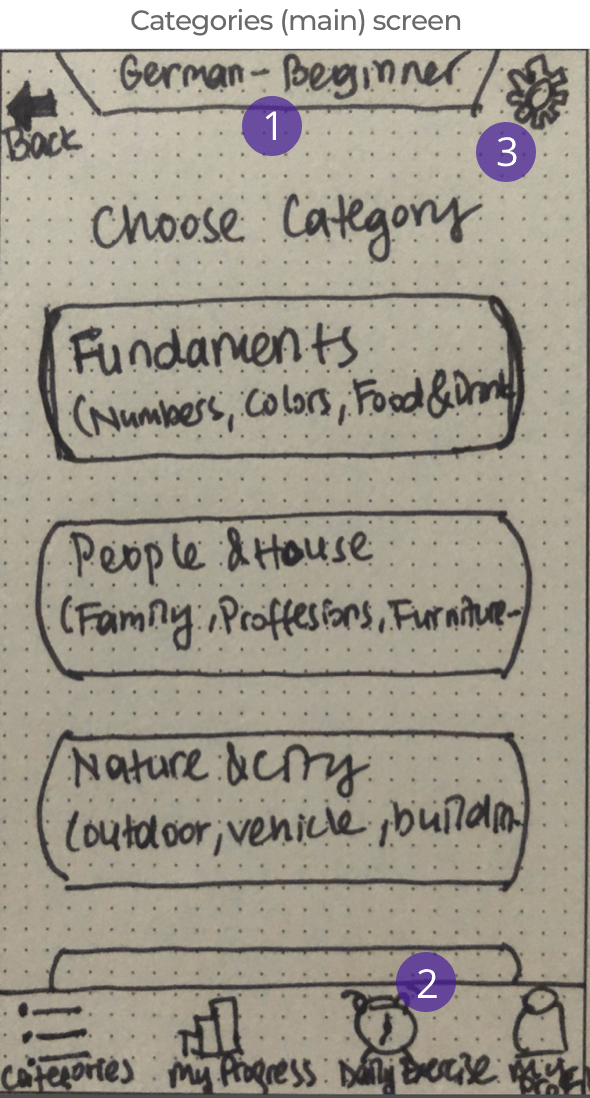 Categories (main) screen
German - Beginner
1
3
Back
Choose Category
Fundaments
(Numbers, Colors, Food & Drink
People & House
(Family, Proffesions, Furniture-
Nature & City
(outdoor, vehicle, buildin
2
Categories
My Progress
Daily Exercise
My
Profil